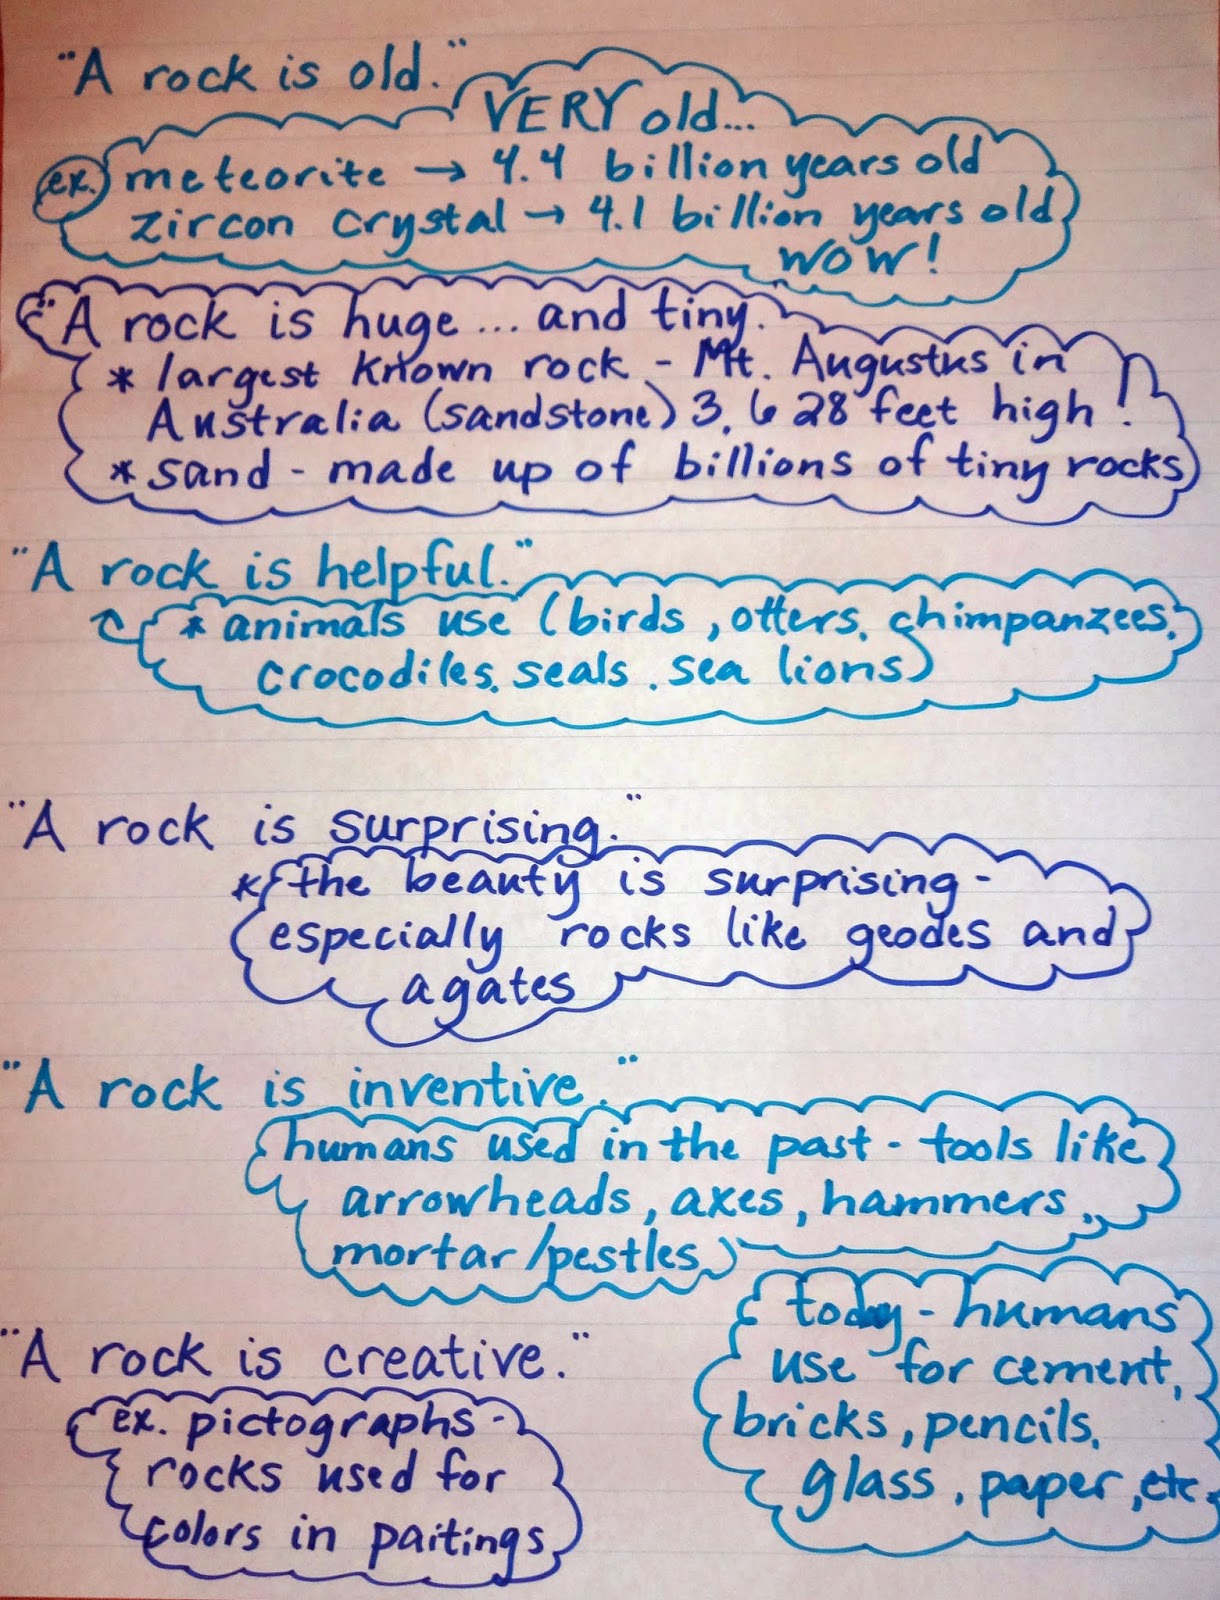 "A rock is old."
VERY old...
ex. meteorite → 4.4 billion years old
zircon crystal → 4.1 billion years old
WOW!
"A rock is huge ... and tiny.
* largest known rock - Mt. Augustus in
Australia (sandstone) 3,628 feet high!
* sand - made up of billions of tiny rocks
"A rock is helpful."
* animals use (birds, otters, chimpanzees,
crocodiles, seals, sea lions)
"A rock is surprising."
* the beauty is surprising -
especially rocks like geodes and
agates
"A rock is inventive."
humans used in the past - tools like
arrowheads, axes, hammers,
mortar/pestles
today - humans
use for cement,
bricks, pencils,
glass, paper, etc.
"A rock is creative."
ex. pictographs -
rocks used for
colors in paitings